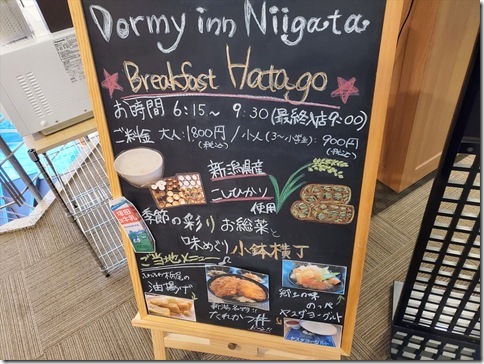 Dormy inn Niigata
Breakfast Hatago
お時間 6:15～ 9:30(最終入店9:00)
ご料金 大人:1800円/小人(3～小学生):900円
(税込) (税込)
新潟県産
こしひかり
使用
季節の彩り お総菜と
味めぐり 小鉢横丁
ご当地メニュー
油揚げ
たれかつ丼
郷土の味
のっぺ
ヤスダヨーグルト